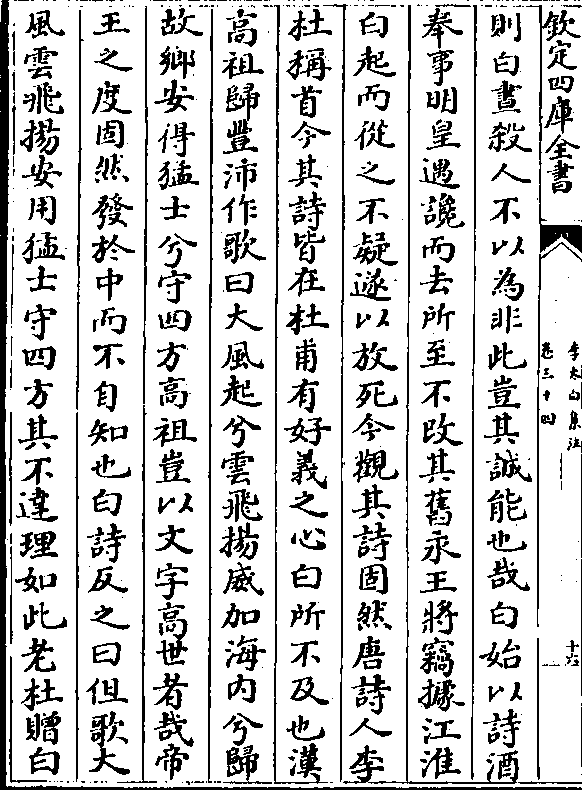 欽定四庫全書
李太白集注
卷三十四
十六
則白晝殺人不以為非此豈其誠能也哉白始以詩酒
奉事明皇遇讒而去所至不改其舊永王將竊據江淮
白起而從之不疑遂以放死今觀其詩固然唐詩人李
杜稱首今其詩皆在杜甫有好義之心白所不及也漢
高祖歸豐沛作歌曰大風起兮雲飛揚威加海内兮歸
故鄉安得猛士兮守四方高祖豈以文字高世者哉帝
王之度固然發於中而不自知也白詩反之曰但歌大
風雲飛揚安用猛士守四方其不違理如此老杜贈白